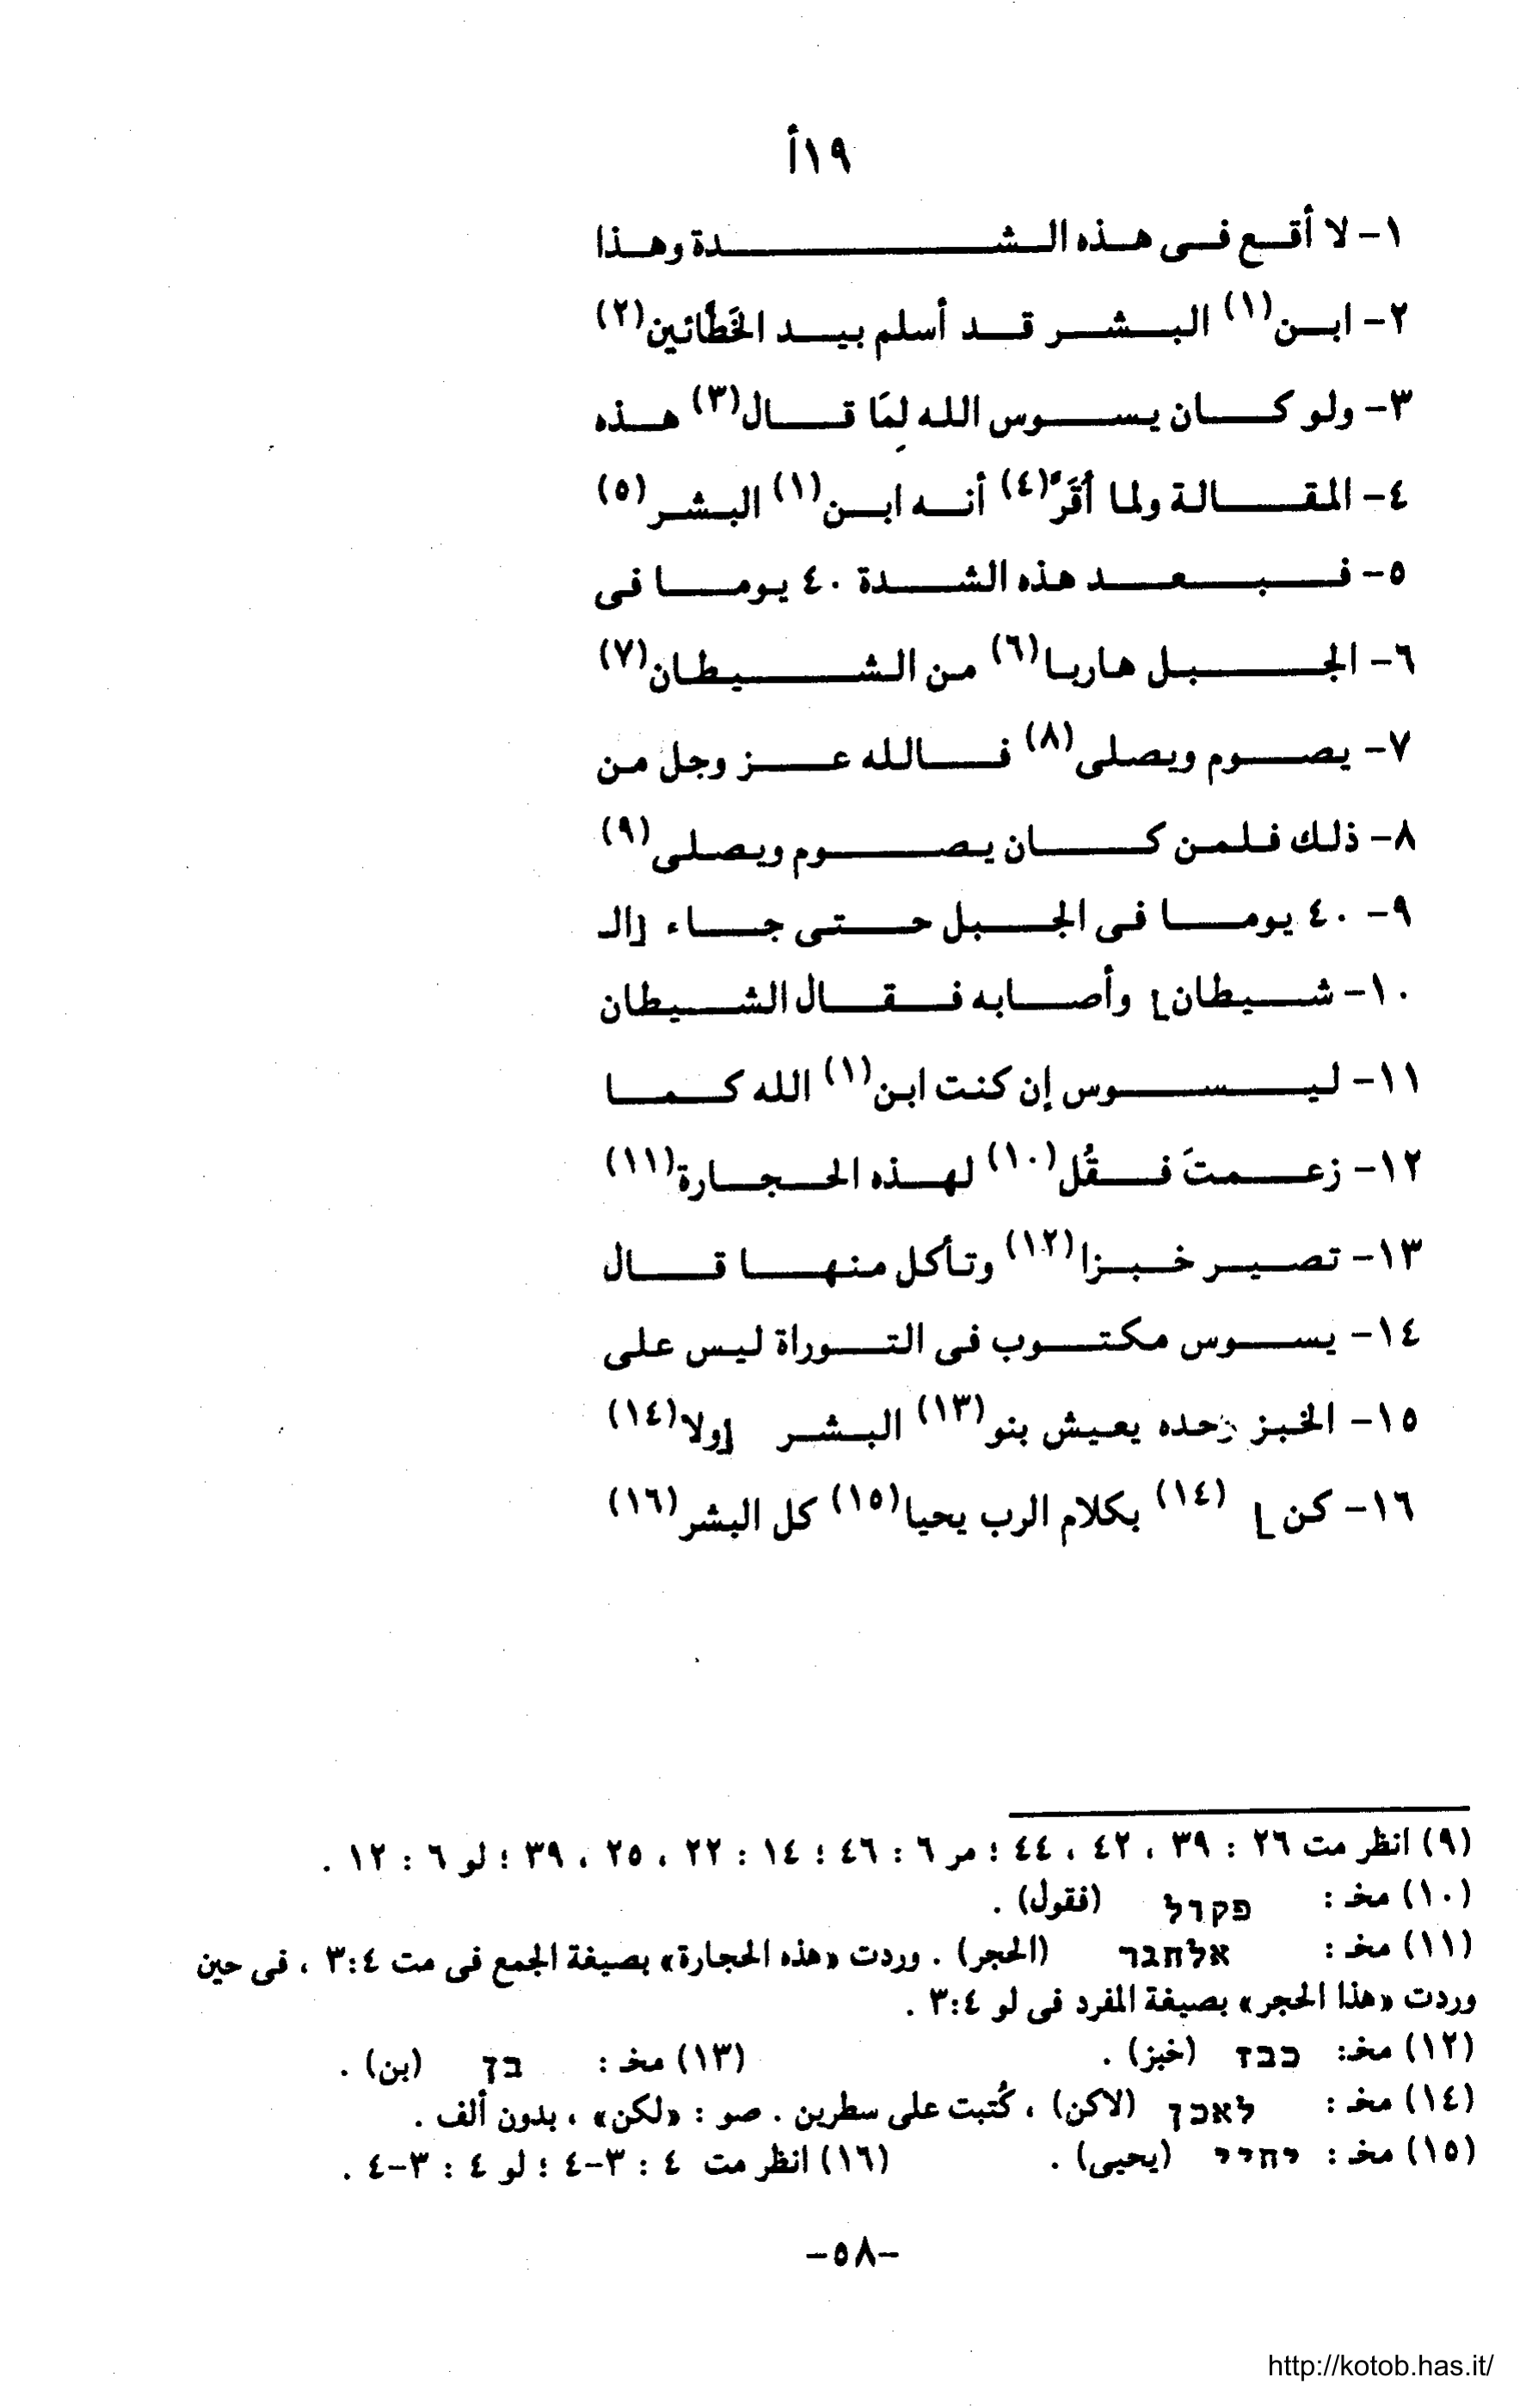 ١٩أ
١- لا أقع فى هذه الشدة وهذا
٢- ابن(١) البشر قد أسلم بيد الخَطَّائين(٢)
٣- ولو كان يسوس الله لِمَا قال(٣) هذه
٤- المقالة ولما أقَرَّ(٤) أنه ابن(١) البشر(٥)
٥- فبعد هذه الشدة ٤٠ يوما فى
٦- الجبل هاربا(٦) من الشيطان(٧)
٧- يصوم ويصلى(٨) فالله عز وجل من
٨- ذلك فلمن كان يصوم ويصلى(٩)
٩- ٤٠ يوما فى الجبل حتى جاء [الـ
١٠- شيطان] وأصابه فقال الشيطان
١١- ليسوس إن كنت ابن(١) الله كما
١٢- زعمتَ فقُل(١٠) لهذه الحجارة(١١)
١٣- تصير خبزا(١٢) وتأكل منها قال
١٤- يسوس مكتوب فى التوراة ليس على
١٥- الخبز وحده يعيش بنو(١٣) البشر [ولا(١٤)
١٦- كن] (١٤) بكلام الرب يحيا(١٥) كل البشر(١٦)
(٩) انظر مت ٢٦ : ٣٩ ، ٤٢ ، ٤٤ ؛ مر ٦ : ٤٦ ؛ ١٤ : ٢٢ ، ٢٥ ، ٣٩ ؛ لو ٦ : ١٢ .
(١٠) مخـ : פקול (فقول) .
(١١) مخـ : אלחגר (الحجر) . وردت «هذه الحجارة» بصيغة الجمع فى مت ٣:٤ ، فى حين
وردت «هذا الحجر» بصيغة المفرد فى لو ٣:٤ .
(١٢) مخـ: כבז (خبز) . (١٣) مخـ : בן (بن) .
(١٤) مخـ : לאכן (لاكن) ، كُتبت على سطرين . صو : «لكن» ، بدون ألف .
(١٥) مخـ : יחיי (يحيى) . (١٦) انظر مت ٤ : ٣-٤ ؛ لو ٤ : ٣-٤ .
-٥٨-
http://kotob.has.it/